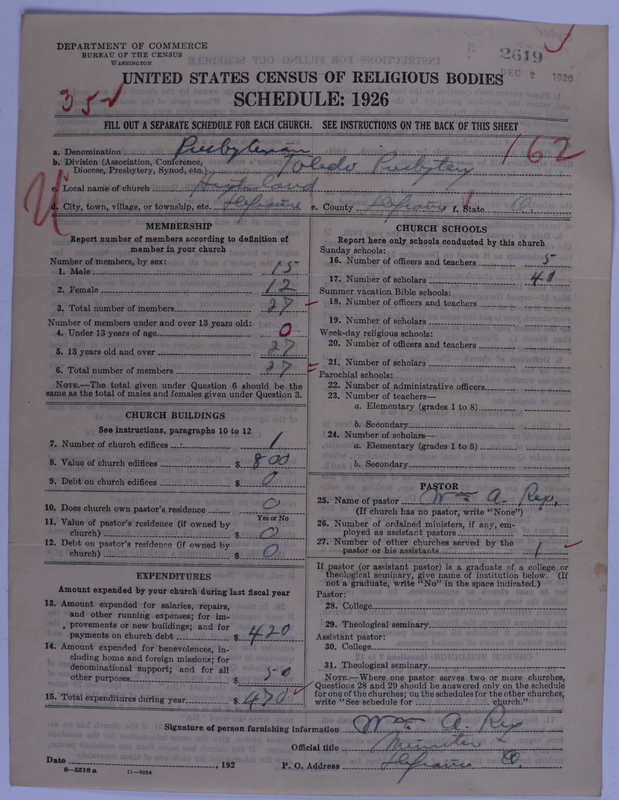 DEPARTMENT OF COMMERCE
BUREAU OF THE CENSUS
WASHINGTON
2619
DEC 2 1926
UNITED STATES CENSUS OF RELIGIOUS BODIES
SCHEDULE: 1926
352
FILL OUT A SEPARATE SCHEDULE FOR EACH CHURCH. SEE INSTRUCTIONS ON THE BACK OF THIS SHEET
162
a. Denomination Presbyterian
b. Division (Association, Conference, Diocese, Presbytery, Synod, etc.) Toledo Presbytery
c. Local name of church Highland
d. City, town, village, or township, etc. Defiance e. County Defiance f. State O.
MEMBERSHIP
Report number of members according to definition of
member in your church
Number of members, by sex:
1. Male 15
2. Female 12
3. Total number of members 27
Number of members under and over 13 years old:
4. Under 13 years of age 0
5. 13 years old and over 27
6. Total number of members 27
NOTE.—The total given under Question 6 should be the
same as the total of males and females given under Question 3.
CHURCH BUILDINGS
See instructions, paragraphs 10 to 12
7. Number of church edifices 1
8. Value of church edifices $ 800
9. Debt on church edifices $ 0
10. Does church own pastor's residence 0
Yes or No
11. Value of pastor's residence (if owned by
church) $ 0
12. Debt on pastor's residence (if owned by
church) $ 0
EXPENDITURES
Amount expended by your church during last fiscal year
13. Amount expended for salaries, repairs,
and other running expenses; for im-
provements or new buildings; and for
payments on church debt $ 420
14. Amount expended for benevolences, in-
cluding home and foreign missions; for
denominational support; and for all
other purposes $ 50
15. Total expenditures during year $ 470
CHURCH SCHOOLS
Report here only schools conducted by this church
Sunday schools:
16. Number of officers and teachers 5
17. Number of scholars 40
Summer vacation Bible schools:
18. Number of officers and teachers
19. Number of scholars
Week-day religious schools:
20. Number of officers and teachers
21. Number of scholars
Parochial schools:
22. Number of administrative officers
23. Number of teachers—
a. Elementary (grades 1 to 8)
b. Secondary
24. Number of scholars—
a. Elementary (grades 1 to 8)
b. Secondary
PASTOR
25. Name of pastor Wm A. Rex,
(If church has no pastor, write "None")
26. Number of ordained ministers, if any, em-
ployed as assistant pastors
27. Number of other churches served by the
pastor or his assistants 1
If pastor (or assistant pastor) is a graduate of a college or
theological seminary, give name of institution below. (If
not a graduate, write "No" in the space indicated.)
Pastor:
28. College
29. Theological seminary
Assistant pastor:
30. College
31. Theological seminary
NOTE.—Where one pastor serves two or more churches,
Questions 28 and 29 should be answered only on the schedule
for one of the churches; on the schedules for the other churches,
write "See schedule for church."
Signature of person furnishing information Wm A. Rex
Official title Minister
Date , 192 P. O. Address Defiance O.
8-5318a 11-9054